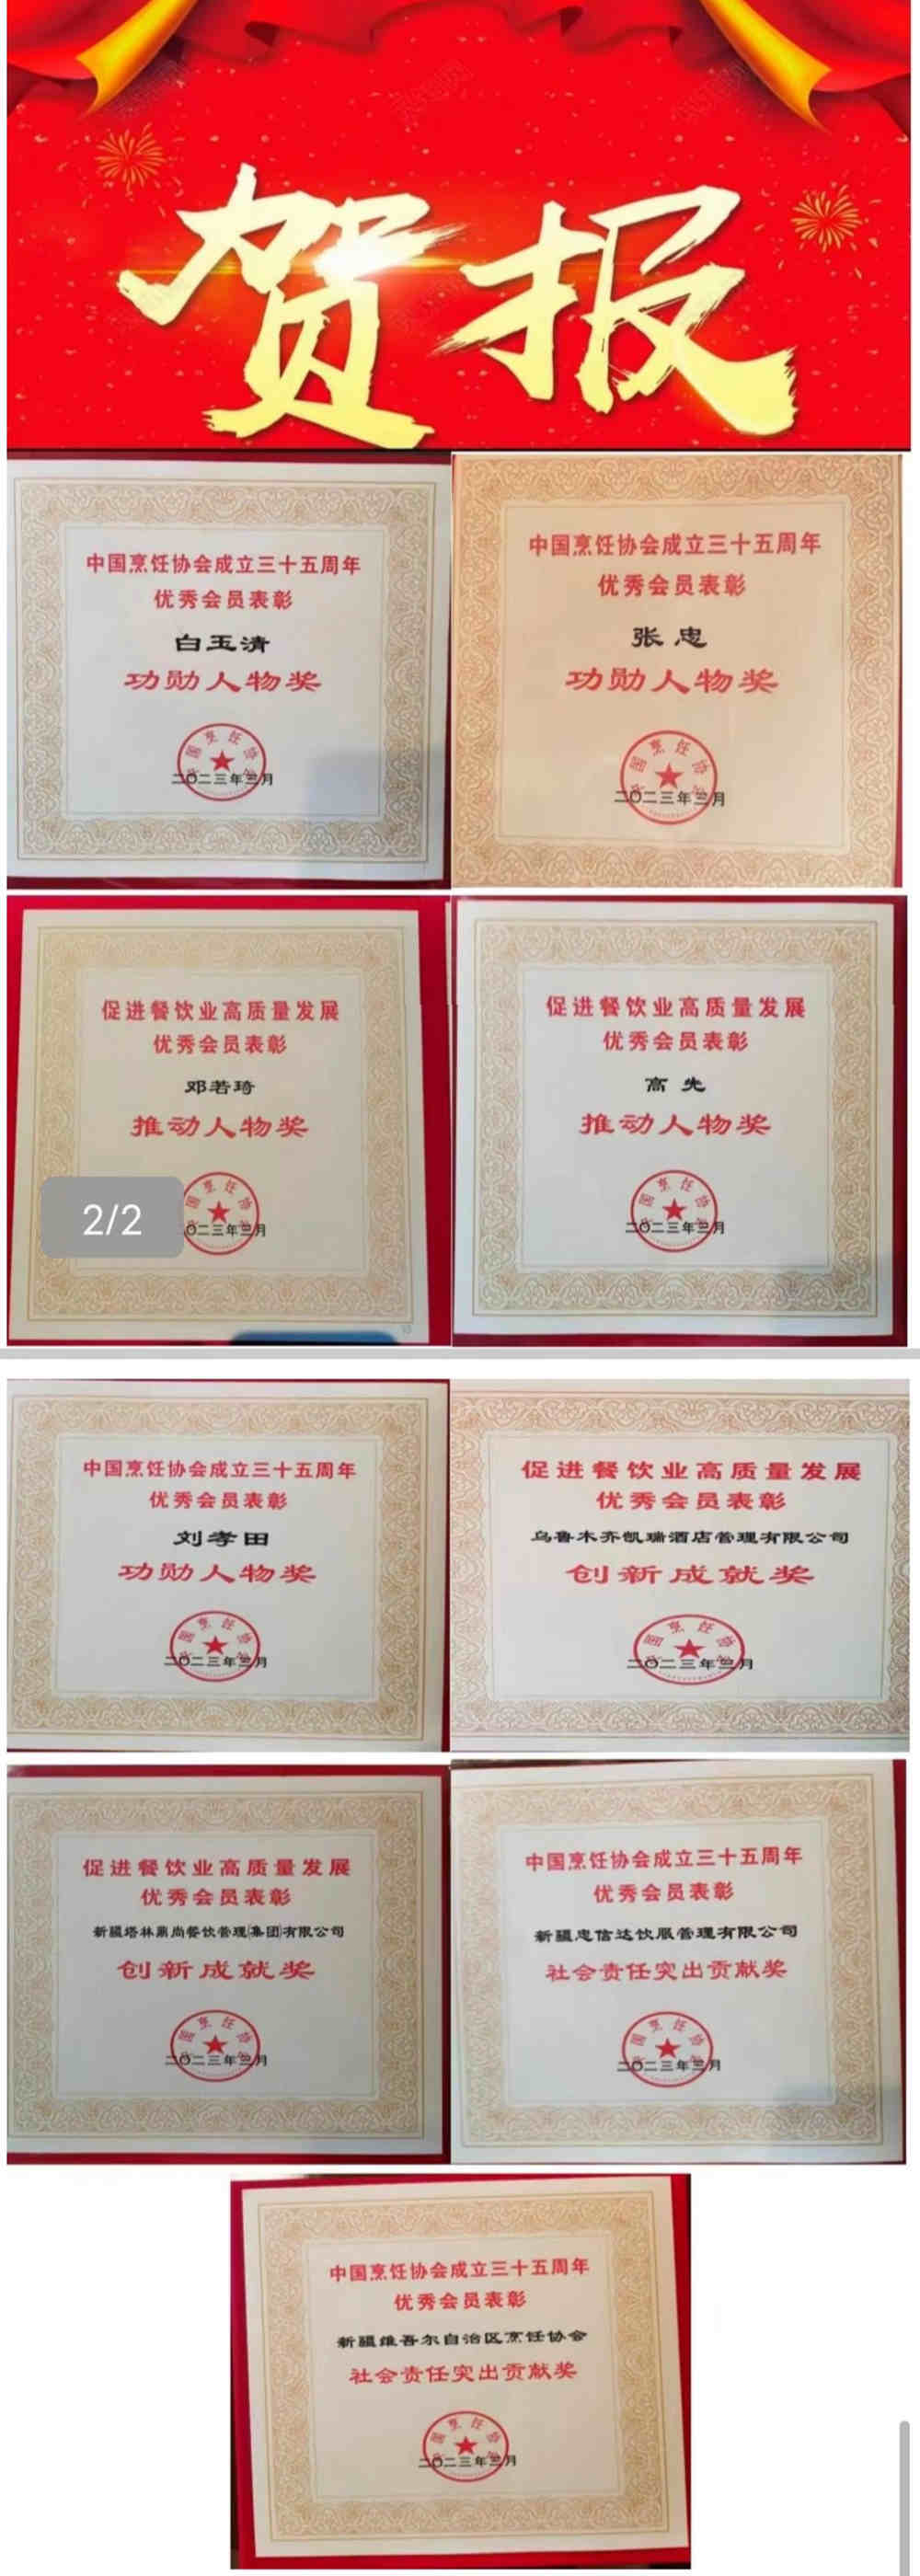 贺报
中国烹饪协会成立三十五周年
优秀会员表彰
白玉清
功勋人物奖
中国烹饪协会
二〇二三年三月
中国烹饪协会成立三十五周年
优秀会员表彰
张忠
功勋人物奖
中国烹饪协会
二〇二三年三月
促进餐饮业高质量发展
优秀会员表彰
邓若琦
推动人物奖
国烹饪协
〇二三年三月
2/2
促进餐饮业高质量发展
优秀会员表彰
高先
推动人物奖
中国烹饪协会
二〇二三年三月
中国烹饪协会成立三十五周年
优秀会员表彰
刘孝田
功勋人物奖
中国烹饪协会
二〇二三年三月
促进餐饮业高质量发展
优秀会员表彰
乌鲁木齐凯瑞酒店管理有限公司
创新成就奖
中国烹饪协会
二〇二三年三月
促进餐饮业高质量发展
优秀会员表彰
新疆塔林鼎尚餐饮管理(集团)有限公司
创新成就奖
中国烹饪协会
二〇二三年三月
中国烹饪协会成立三十五周年
优秀会员表彰
新疆忠信达饮服管理有限公司
社会责任突出贡献奖
中国烹饪协会
二〇二三年三月
中国烹饪协会成立三十五周年
优秀会员表彰
新疆维吾尔自治区烹饪协会
社会责任突出贡献奖
中国烹饪协会
二〇二三年三月